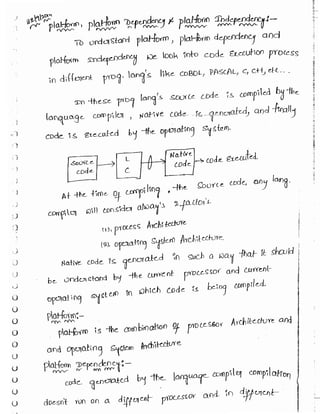 platform, platform Dependency & platform Independency:-
To understand platform, platform dependency and
platform Independency we look into code Execution process
in different prog. lang's like COBOL, PASCAL, C, C++, etc...
In these prog lang's source code is compiled by the
language compiler, Native code is generated, and finally
code is executed by the operating system.
Source code → L C → Native code → code Executed
At the time of compiling, the source code, any lang.
compiler will consider always 2 factors.
(1), process Architecture
(2) operating System Architecture.
Native code is generated in such a way that it should
be understand by the current processor and current
operating system in which code is being compiled.
Platform:-
platform is the combination of processor Architecture and
and operating System Architecture
platform Dependency:-
code generated by the language compiler compilation
doesn't run on a different processor and in different